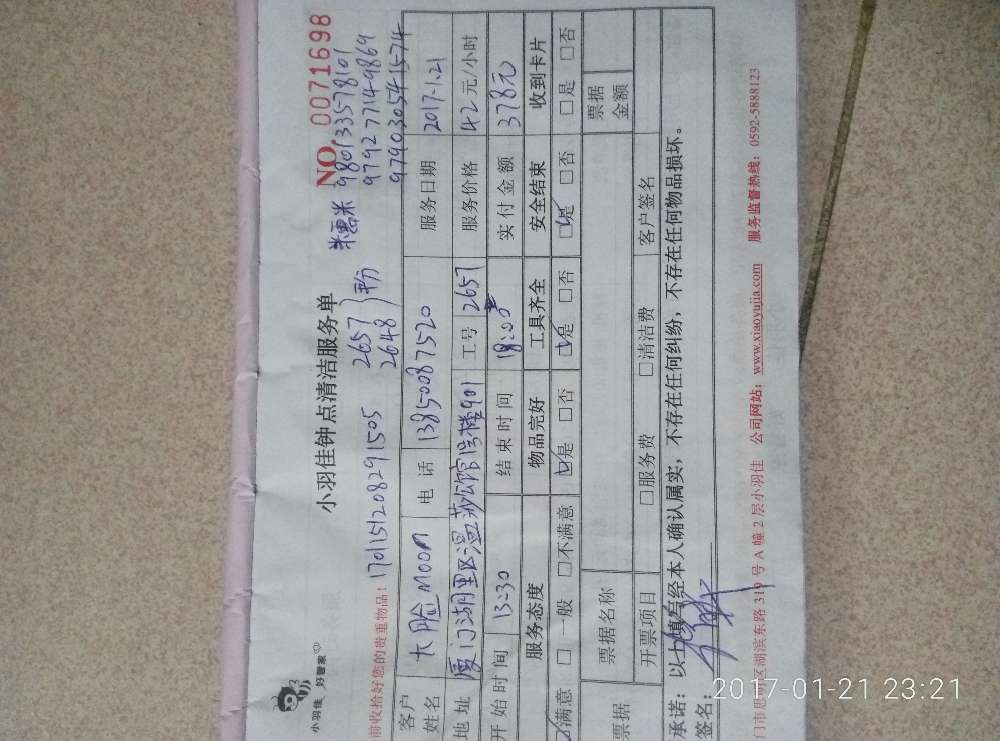 小羽佳 好管家
小羽佳钟点清洁服务单
NO. 0071698
糯米 9801335778101
前收拾好您的贵重物品:1701151208291505 2657
2648
9792771149869
9790305415774
客户姓名 大脸moon 电话 13850087520 服务日期 2017.1.21
地址 厦门湖里区温莎公馆1号楼901 工号 2657 服务价格 42元/小时
开始时间 13:30 结束时间 18:00 实付金额 378元
服务态度 物品完好 工具齐全 安全结束 收到卡片
☑满意 □一般 □不满意 ☑是 □否 ☑是 □否 ☑是 □否 □是 □否
票据 票据名称 票据金额
开票项目 □服务费 □清洁费 客户签名
承诺:以上填写经本人确认属实,不存在任何纠纷,不存在任何物品损坏。
签名:
门市思明区湖滨东路319号A幢2层小羽佳 公司网站:www.xiaoyujia.com 服务监督热线:0592-5888123
2017-01-21 23:21